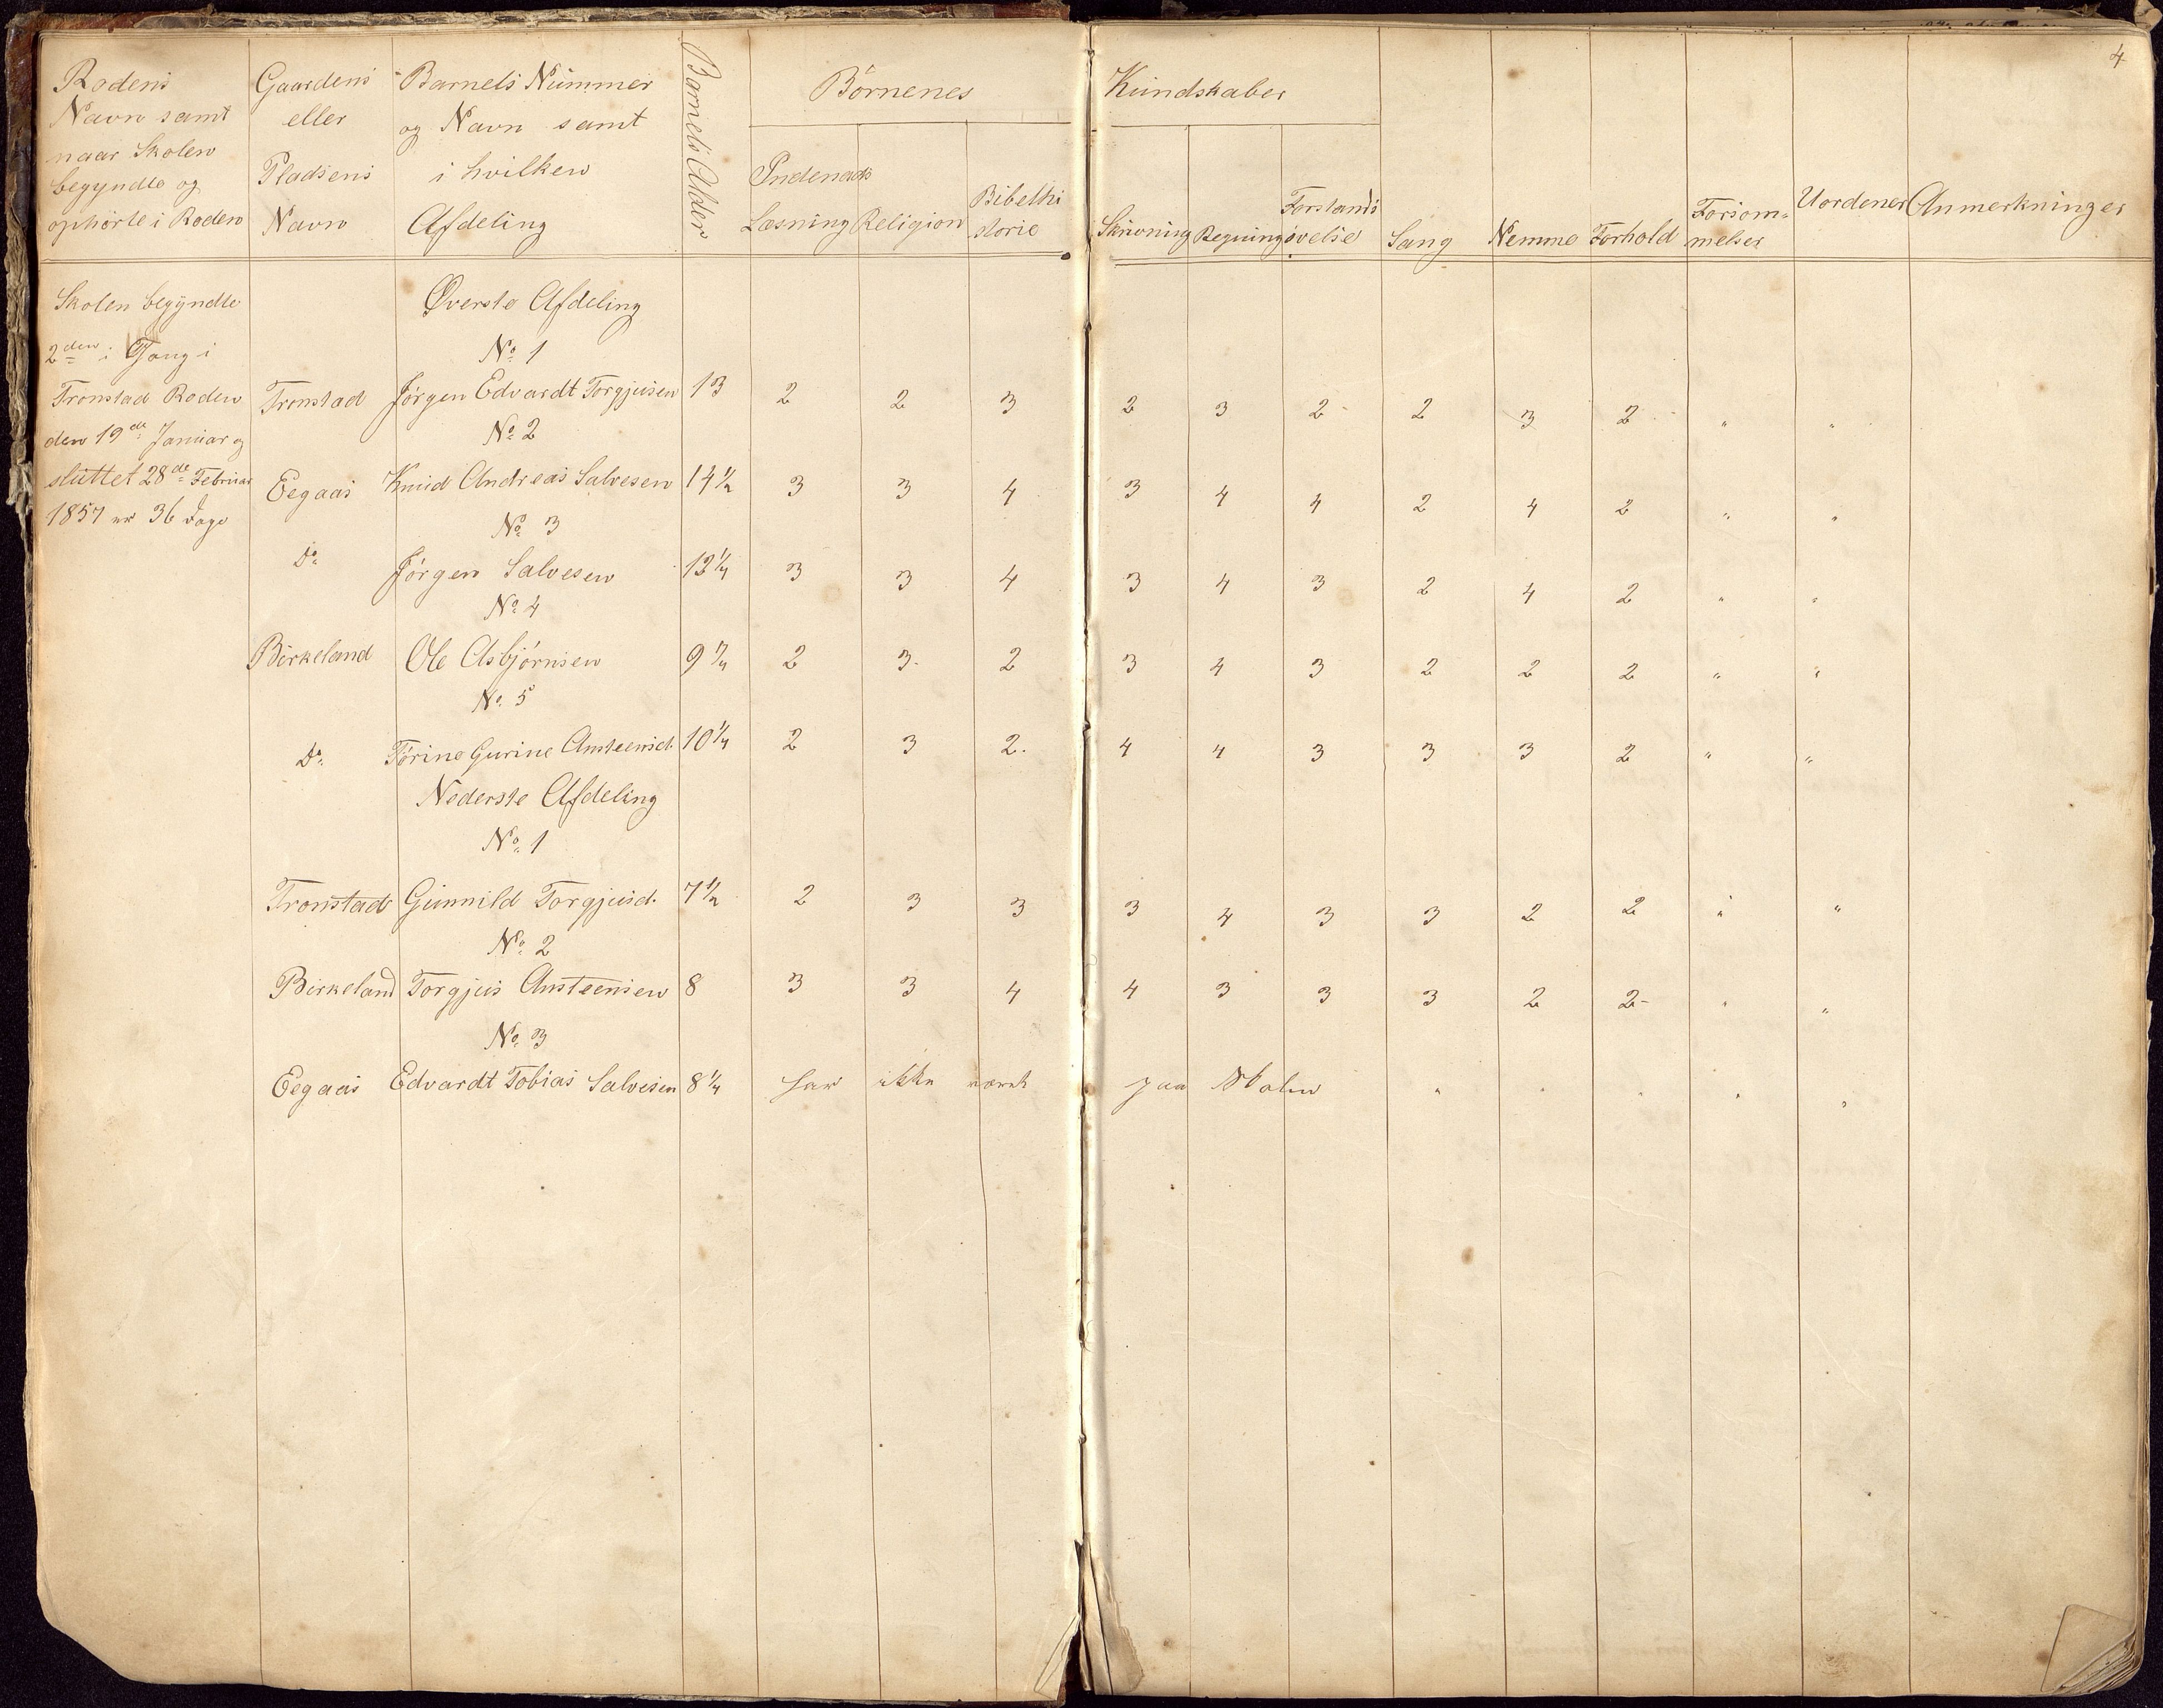 4
Rodens
Navn samt
naar Skolen
begyndte og
ophørte i Roden
Gaardens
eller
Pladsens
Navn
Barnets Nummer
og Navn samt
i hvilken
Afdeling
Barnets Alder
Børnenes Kundskaber
Indenads
Læsning Religion Bibelhi
storie
Skrivning Regning Forstands
øvelse
Sang Nemme Forhold Forsøm-
melser
Uordener Anmerkninger
Skolen begyndte
2den Gang i
Tronstad Roden
den 19de Januar og
sluttet 28de Februar
1857 er 36 Dage
Øverste Afdeling
No 1
Tronstad Jørgen Edvardt Torgjusen 13 2 2 3 2 3 2 2 3 2 " "
No 2
Eegaas Knud Andreas Salvesen 14½ 3 3 4 3 4 4 2 4 2 " "
No 3
Do Jørgen Salvesen 12¼ 3 3 4 3 4 3 2 4 2 " "
No 4
Birkeland Ole Asbjørnsen 9 2 3 2 3 4 3 2 2 2 " "
No 5
Do Tørine Gurine Ansteensd. 10¼ 2 3 2. 4 4 3 3 3 2 " "
Nederste Afdeling
No 1
Tronstad Gunnild Torgjusd. 7½ 2 3 3 3 4 3 3 2 2 " "
No 2
Birkeland Torgjus Ansteensen 8 3 3 4 4 3 3 3 2 2 " "
No 3
Eegaas Edvardt Tobias Salvesen 8¼ har ikke været paa Skolen " " " " "